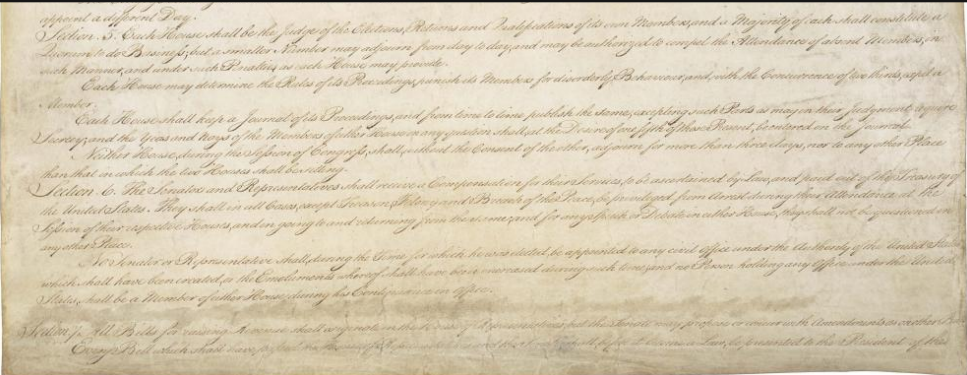 appoint a different Day.
Section. 5. Each House shall be the Judge of the Elections, Returns and Qualifications of its own Members, and a Majority of each shall constitute a
Quorum to do Business; but a smaller Number may adjourn from day to day, and may be authorized to compel the Attendance of absent Members, in
such Manner, and under such Penalties as each House may provide.
Each House may determine the Rules of its Proceedings, punish its Members for disorderly Behaviour, and, with the Concurrence of two thirds, expel a
Member.
Each House shall keep a Journal of its Proceedings, and from time to time publish the same, excepting such Parts as may in their Judgment require
Secrecy; and the Yeas and Nays of the Members of either House on any question shall, at the Desire of one fifth of those Present, be entered on the Journal.
Neither House, during the Session of Congress, shall, without the Consent of the other, adjourn for more than three days, nor to any other Place
than that in which the two Houses shall be sitting.
Section. 6. The Senators and Representatives shall receive a Compensation for their Services, to be ascertained by Law, and paid out of the Treasury of
the United States. They shall in all Cases, except Treason, Felony and Breach of the Peace, be privileged from Arrest during their Attendance at the
Session of their respective Houses, and in going to and returning from the same; and for any Speech or Debate in either House, they shall not be questioned in
any other Place.
No Senator or Representative shall, during the Time for which he was elected, be appointed to any civil Office under the Authority of the United States,
which shall have been created, or the Emoluments whereof shall have been encreased during such time; and no Person holding any Office under the United
States, shall be a Member of either House during his Continuance in Office.
Section. 7. All Bills for raising Revenue shall originate in the House of Representatives; but the Senate may propose or concur with Amendments as on other Bills.
Every Bill which shall have passed the House of Representatives and the Senate, shall, before it become a Law, be presented to the President of the